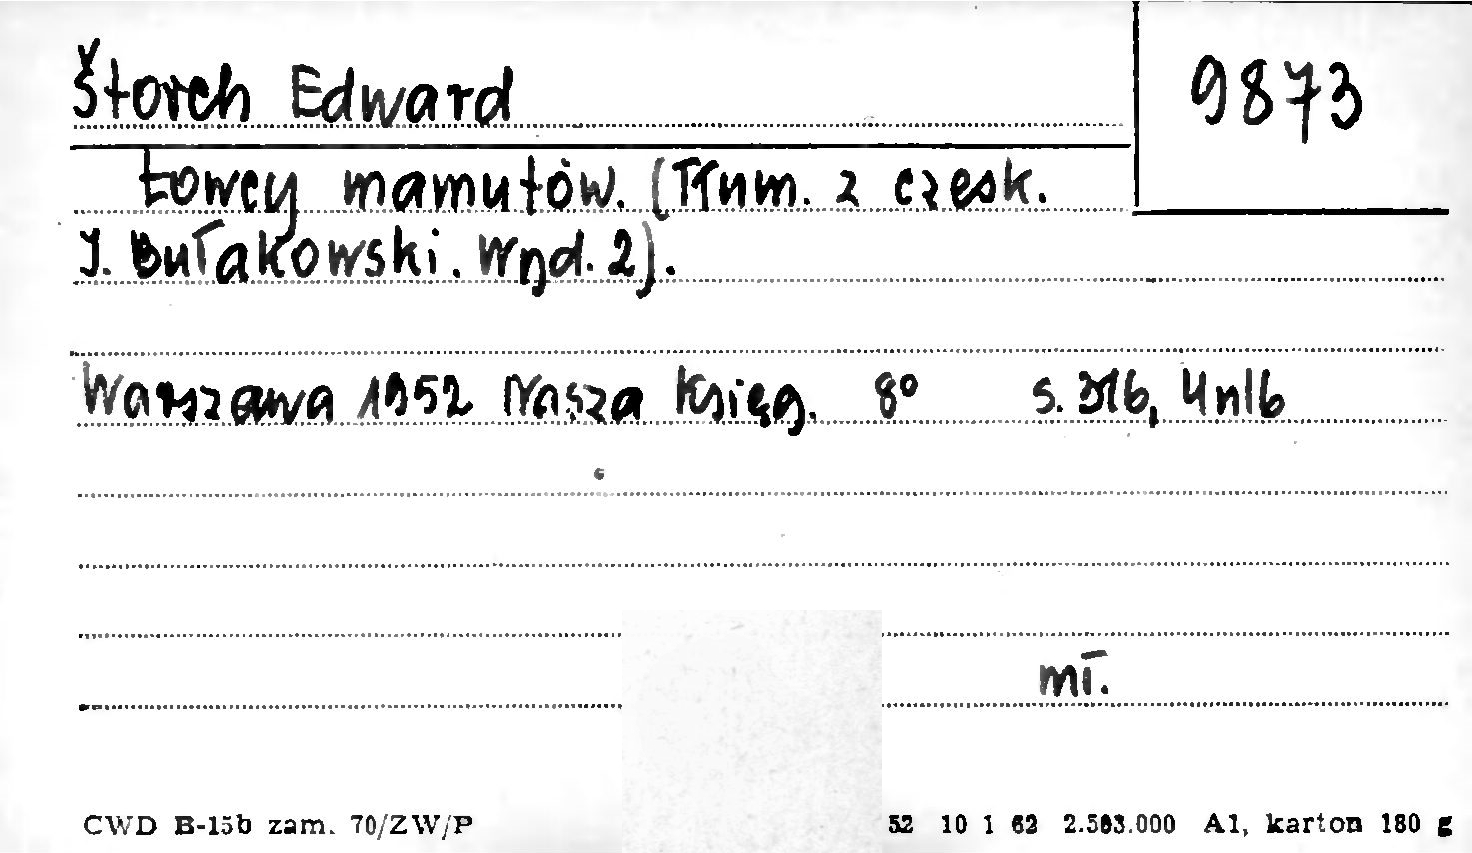 Štorch Edward
9873
Łowcy mamutów. (Tłum. z czesk.
J. Bułakowski. Wyd. 2).
Warszawa 1952 Nasza Księg. 8° s. 316, 4 nlb
mł.
CWD B-15b zam. 70/ZW/P
52 10 1 62 2.583.000 A1, karton 180 g